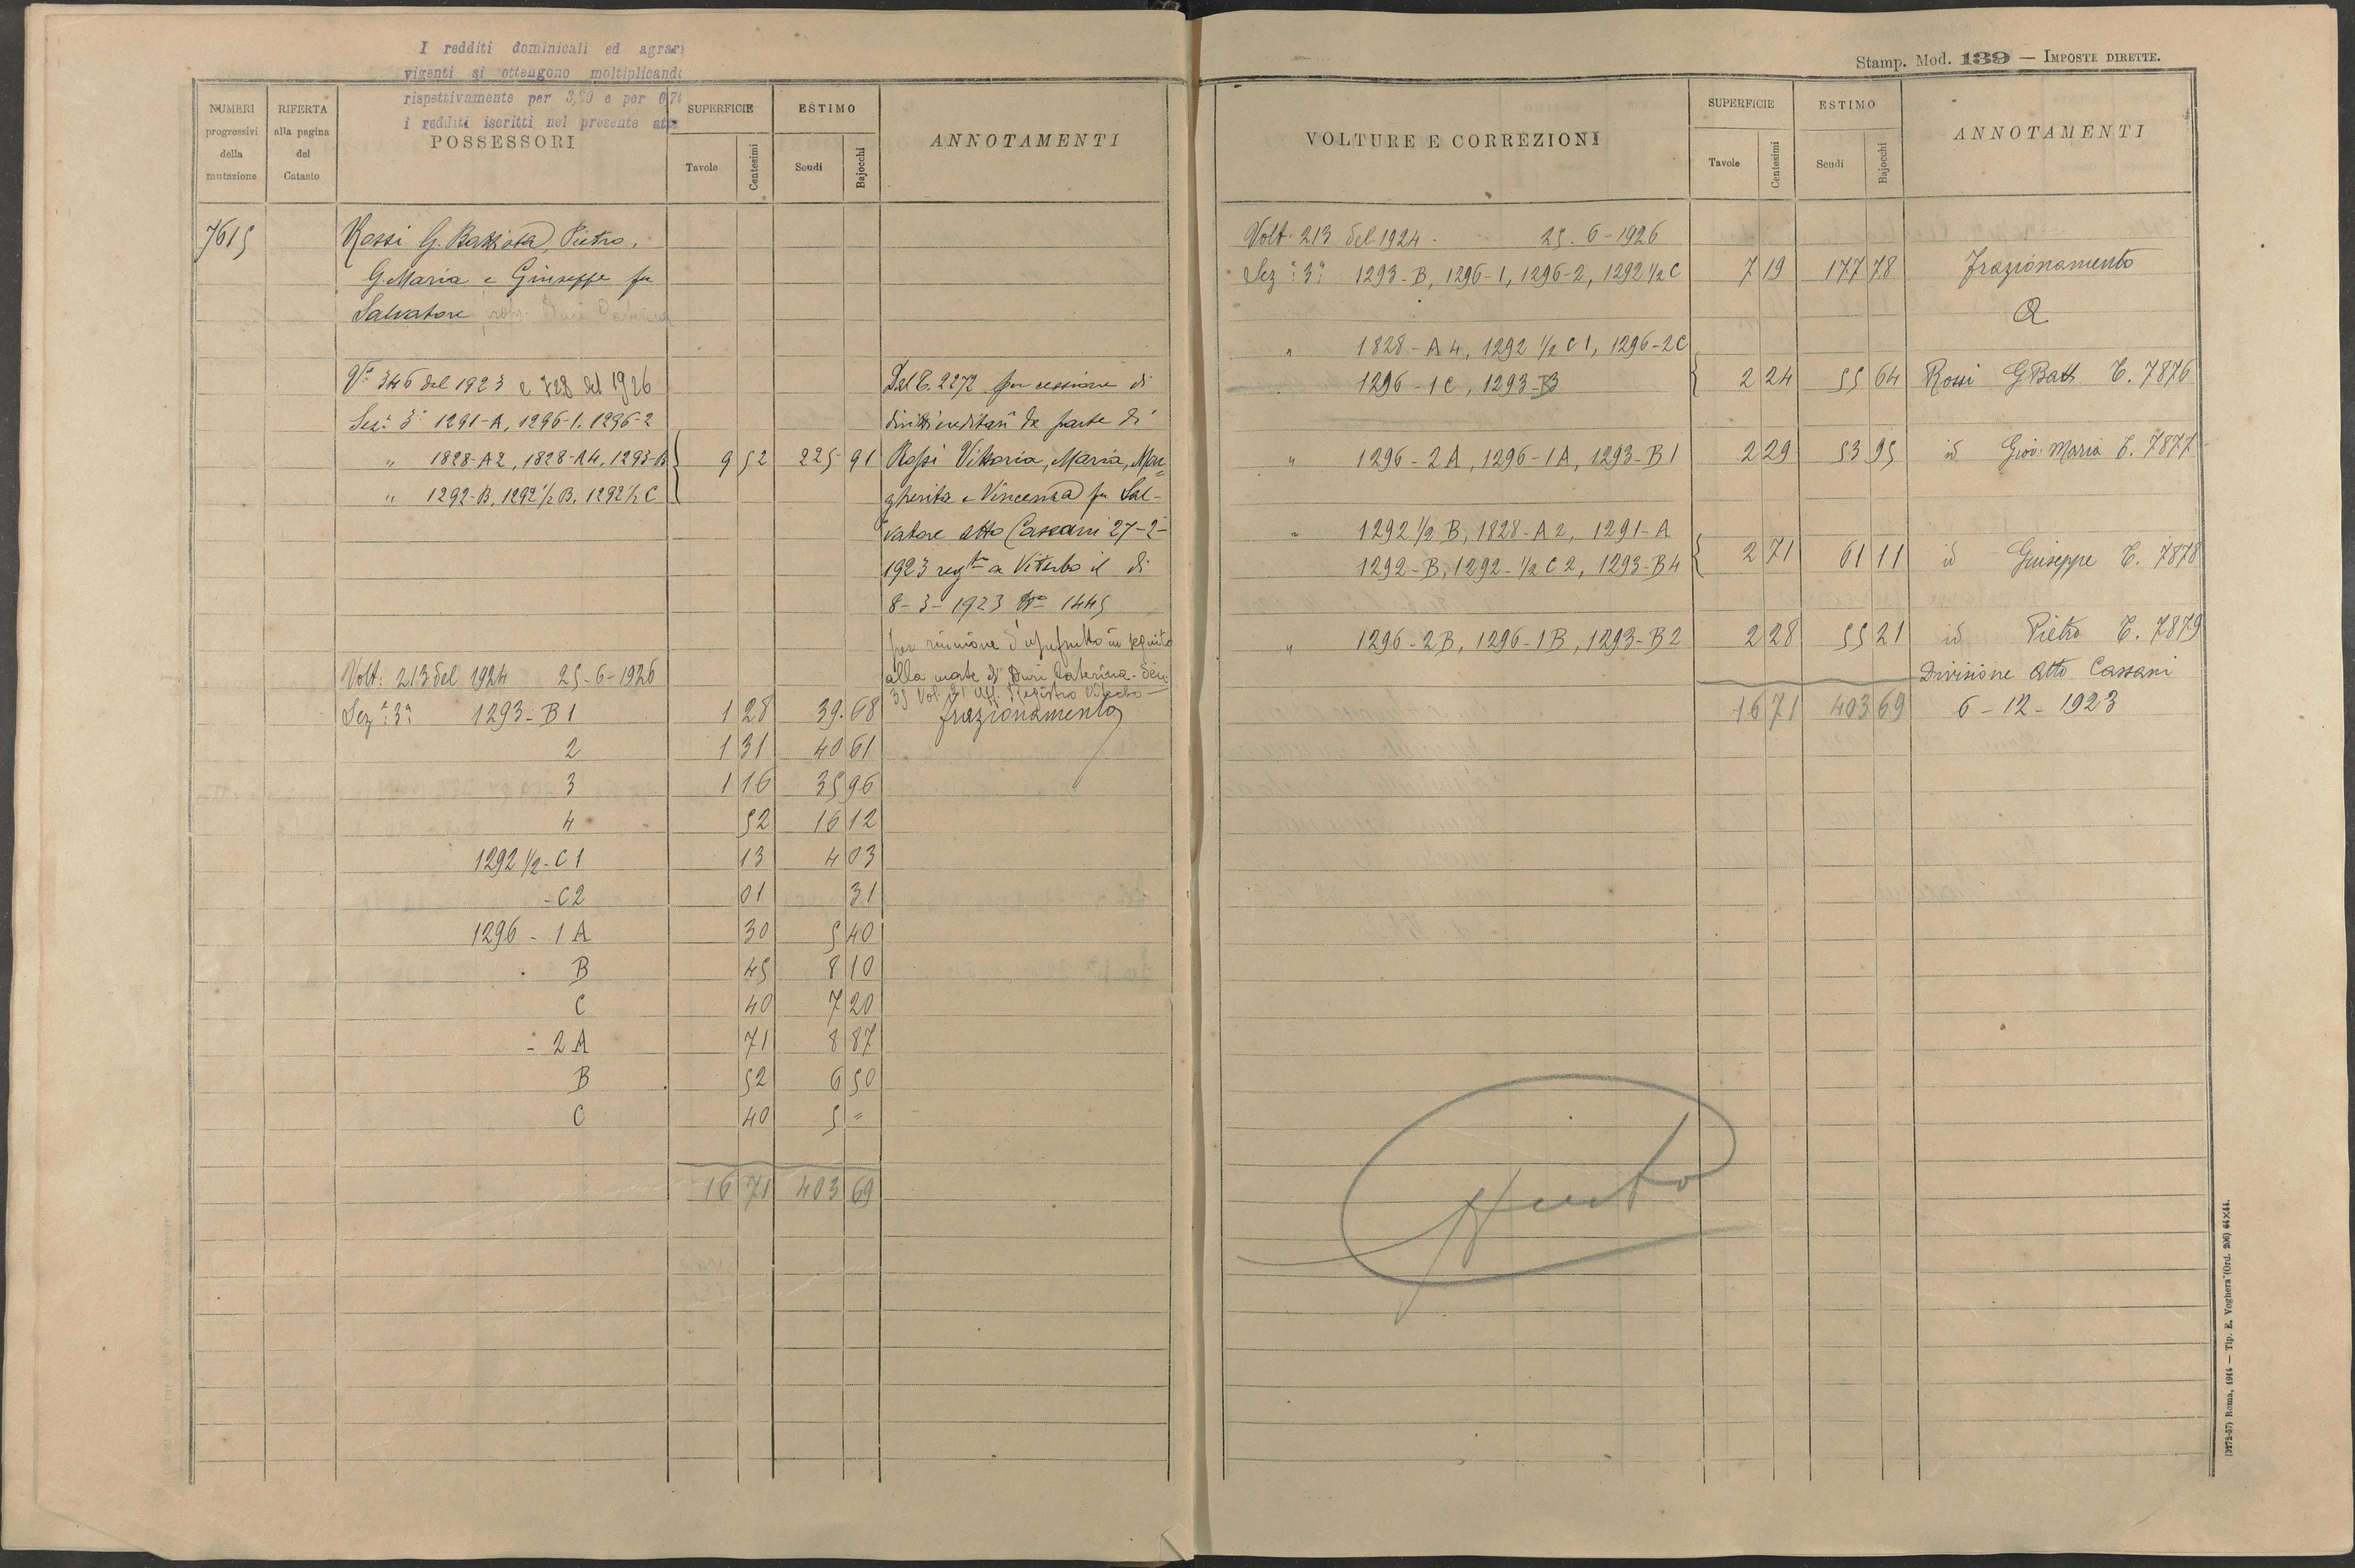 I redditi dominicali ed agrari
vigenti si ottengono moltiplicando
rispettivamente per 3,20 e per 0,74
i redditi iscritti nel presente
NUMERI progressivi della mutazione
RIFERTA alla pagina del Catasto
POSSESSORI
SUPERFICIE
Tavole
Centesimi
ESTIMO
Scudi
Bajocchi
ANNOTAMENTI
7615
Rossi G. Battista, Pietro,
G. Maria e Giuseppe fu
Salvatore
Va 346 del 1923 e 728 del 1926
Seza 3a 1291-A, 1296-1, 1296-2
" 1828-A2, 1828-A4, 1293-B 9 52 225 91
" 1292-B, 1292 1/2 B, 1292 1/2 C
Dal C. 2272 per cessione di
diritti ereditari da parte di
Rossi Vittoria, Maria, Mar=
gherita e Vincenza fu Sal-
vatore atto Cassani 27-2-
1923 regto a Viterbo il di
8-3-1923 No 1445
per riunione d'usufrutto in seguito
alla morte di Duri Caterina. Den.
35 Vol. 121 Uff. Registro Viterbo
Volt: 213 del 1924 25-6-1926
Seza 3a 1293-B1 1 28 39.68 frazionamento
2 1 31 40 61
3 1 16 35 96
4 52 16 12
1292 1/2-C1 13 4 03
-C2 01 31
1296-1A 30 5 40
B 45 8 10
C 40 7 20
-2A 71 8 87
B 52 6 50
C 40 5 =
16 71 403 69
Stamp. Mod. 139 — IMPOSTE DIRETTE.
VOLTURE E CORREZIONI
SUPERFICIE
Tavole
Centesimi
ESTIMO
Scudi
Bajocchi
ANNOTAMENTI
Volt. 213 del 1924 - 25-6-1926
Seza 3a 1293-B, 1296-1, 1296-2, 1292 1/2 C 7 19 177 78 Frazionamento
" 1828-A4, 1292 1/2 C1, 1296-2C
1296-1C, 1293-B3 2 24 55 64 Rossi G Batt. C. 7876
" 1296-2A, 1296-1A, 1293-B1 2 29 53 95 id Giov. Maria C. 7877
" 1292 1/2 B, 1828-A2, 1291-A
1292-B, 1292-1/2 C2, 1293-B4 2 71 61 11 id Giuseppe C. 7878
" 1296-2B, 1296-1B, 1293-B2 2 28 55 21 id Pietro C. 7879
Divisione atto Cassani
16 71 403 69 6-12-1923
(3272-57) Roma, 1914 — Tip. E. Voghera (Ord. 206) 64×44.